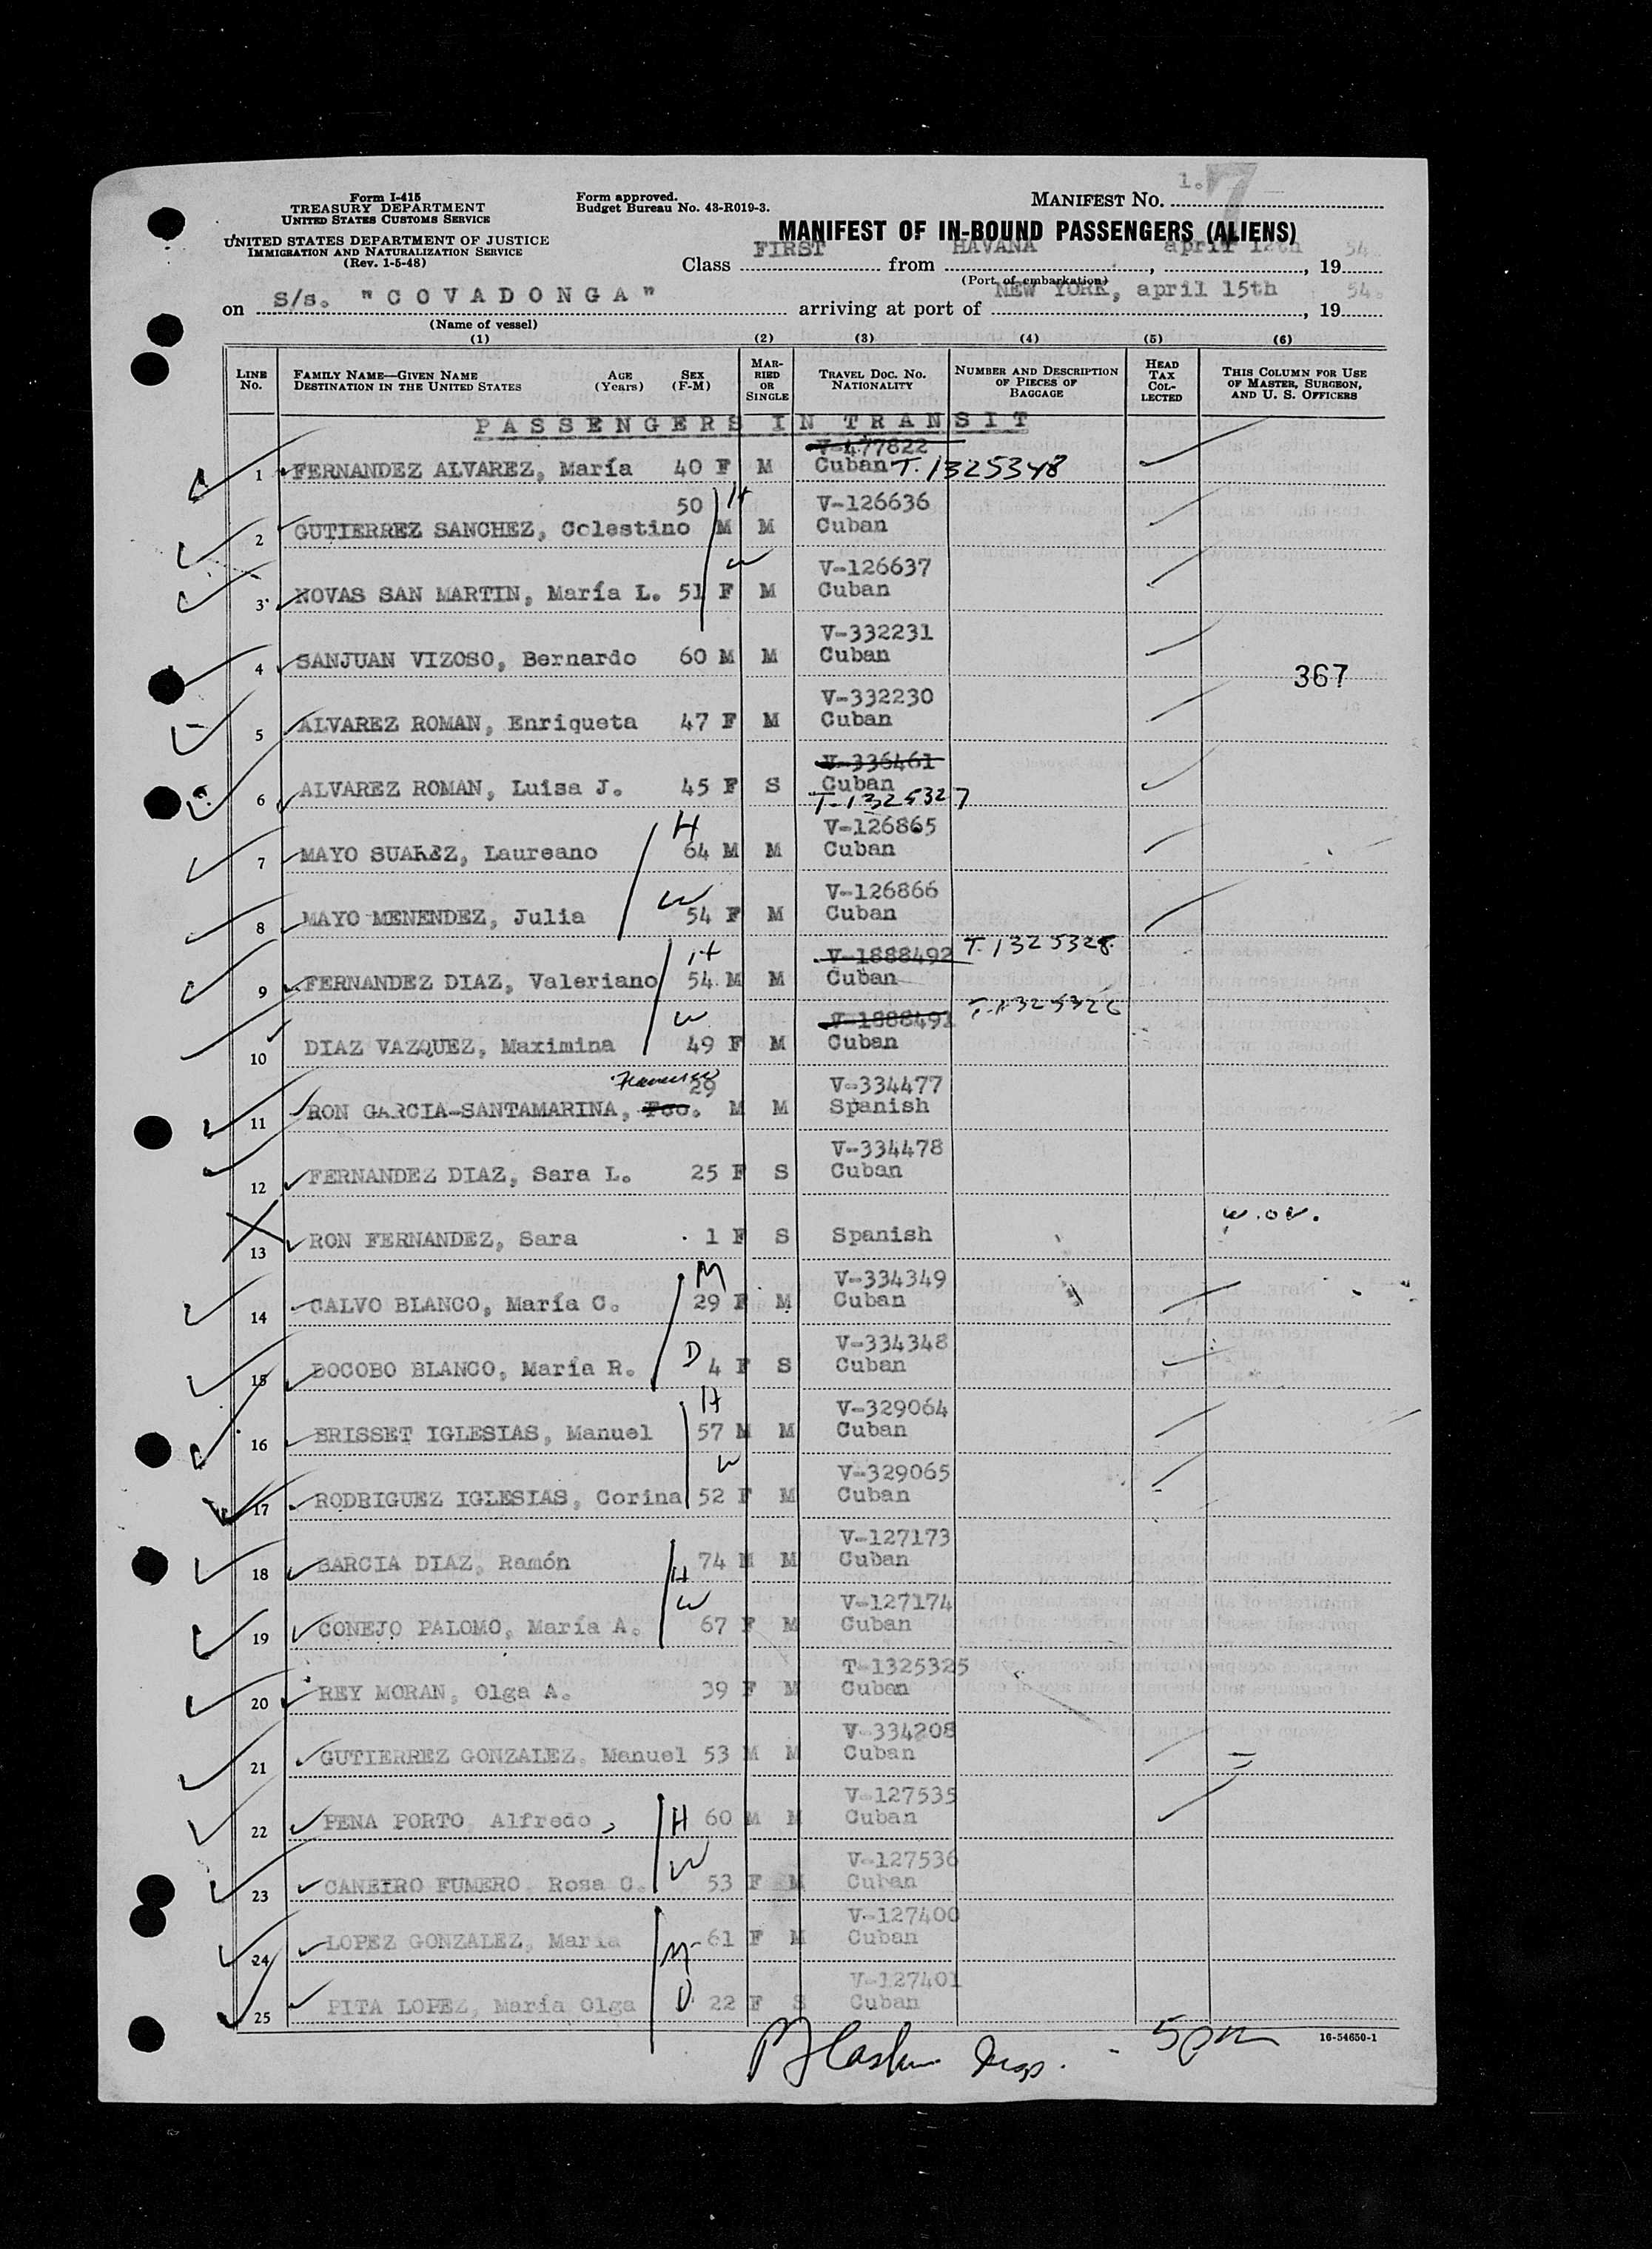 Form I-415
TREASURY DEPARTMENT
UNITED STATES CUSTOMS SERVICE
UNITED STATES DEPARTMENT OF JUSTICE
IMMIGRATION AND NATURALIZATION SERVICE
(Rev. 1-5-48)
Form approved.
Budget Bureau No. 43-R019-3.
MANIFEST No. 1. 7
MANIFEST OF IN-BOUND PASSENGERS (ALIENS)
Class FIRST from HAVANA, april 12th, 19 54
(Port of embarkation)
on S/s. "COVADONGA" arriving at port of NEW YORK, april 15th, 19 54.
(Name of vessel)
(1) (2) (3) (4) (5) (6)
LINE No. FAMILY NAME—GIVEN NAME DESTINATION IN THE UNITED STATES AGE (Years) SEX (F-M) MARRIED OR SINGLE TRAVEL DOC. No. NATIONALITY NUMBER AND DESCRIPTION OF PIECES OF BAGGAGE HEAD TAX COLLECTED THIS COLUMN FOR USE OF MASTER, SURGEON, AND U. S. OFFICERS
PASSENGERS IN TRANSIT
V-477822
1 FERNANDEZ ALVAREZ, María 40 F M Cuban T. 1325348
50 H V-126636
2 GUTIERREZ SANCHEZ, Celestino M M Cuban
W V-126637
3 NOVAS SAN MARTIN, María L. 51 F M Cuban
V-332231
4 SANJUAN VIZOSO, Bernardo 60 M M Cuban
367
V-332230
5 ALVAREZ ROMAN, Enriqueta 47 F M Cuban
V-336461
6 ALVAREZ ROMAN, Luisa J. 45 F S Cuban
T-1325327
H V-126865
7 MAYO SUAREZ, Laureano 64 M M Cuban
W V-126866
8 MAYO MENENDEZ, Julia 54 F M Cuban
H V-1888492 T. 1325328
9 FERNANDEZ DIAZ, Valeriano 54 M M Cuban
W V-1888491 T. 1325326
10 DIAZ VAZQUEZ, Maximina 49 F M Cuban
Francisco 29 V-334477
11 RON GARCIA-SANTAMARINA, Fco. M M Spanish
V-334478
12 FERNANDEZ DIAZ, Sara L. 25 F S Cuban
w.o.v.
13 RON FERNANDEZ, Sara 1 F S Spanish
M V-334349
14 CALVO BLANCO, María C. 29 F M Cuban
D V-334348
15 BOCOBO BLANCO, María R. 4 F S Cuban
H V-329064
16 BRISSET IGLESIAS, Manuel 57 M M Cuban
W V-329065
17 RODRIGUEZ IGLESIAS, Corina 52 F M Cuban
V-127173
18 BARCIA DIAZ, Ramón H 74 M M Cuban
W V-127174
19 CONEJO PALOMO, María A. 67 F M Cuban
T-1325325
20 REY MORAN, Olga A. 39 F M Cuban
V-334208
21 GUTIERREZ GONZALEZ, Manuel 53 M M Cuban
V-127535
22 PENA PORTO, Alfredo, H 60 M M Cuban
W V-127536
23 CANEIRO FUMERO Rosa C. 53 F M Cuban
V-127400
24 LOPEZ GONZALEZ, María M 61 F M Cuban
V-127401
25 PITA LOPEZ, María Olga D 22 F S Cuban
Insp. - 5 pm
16-54650-1